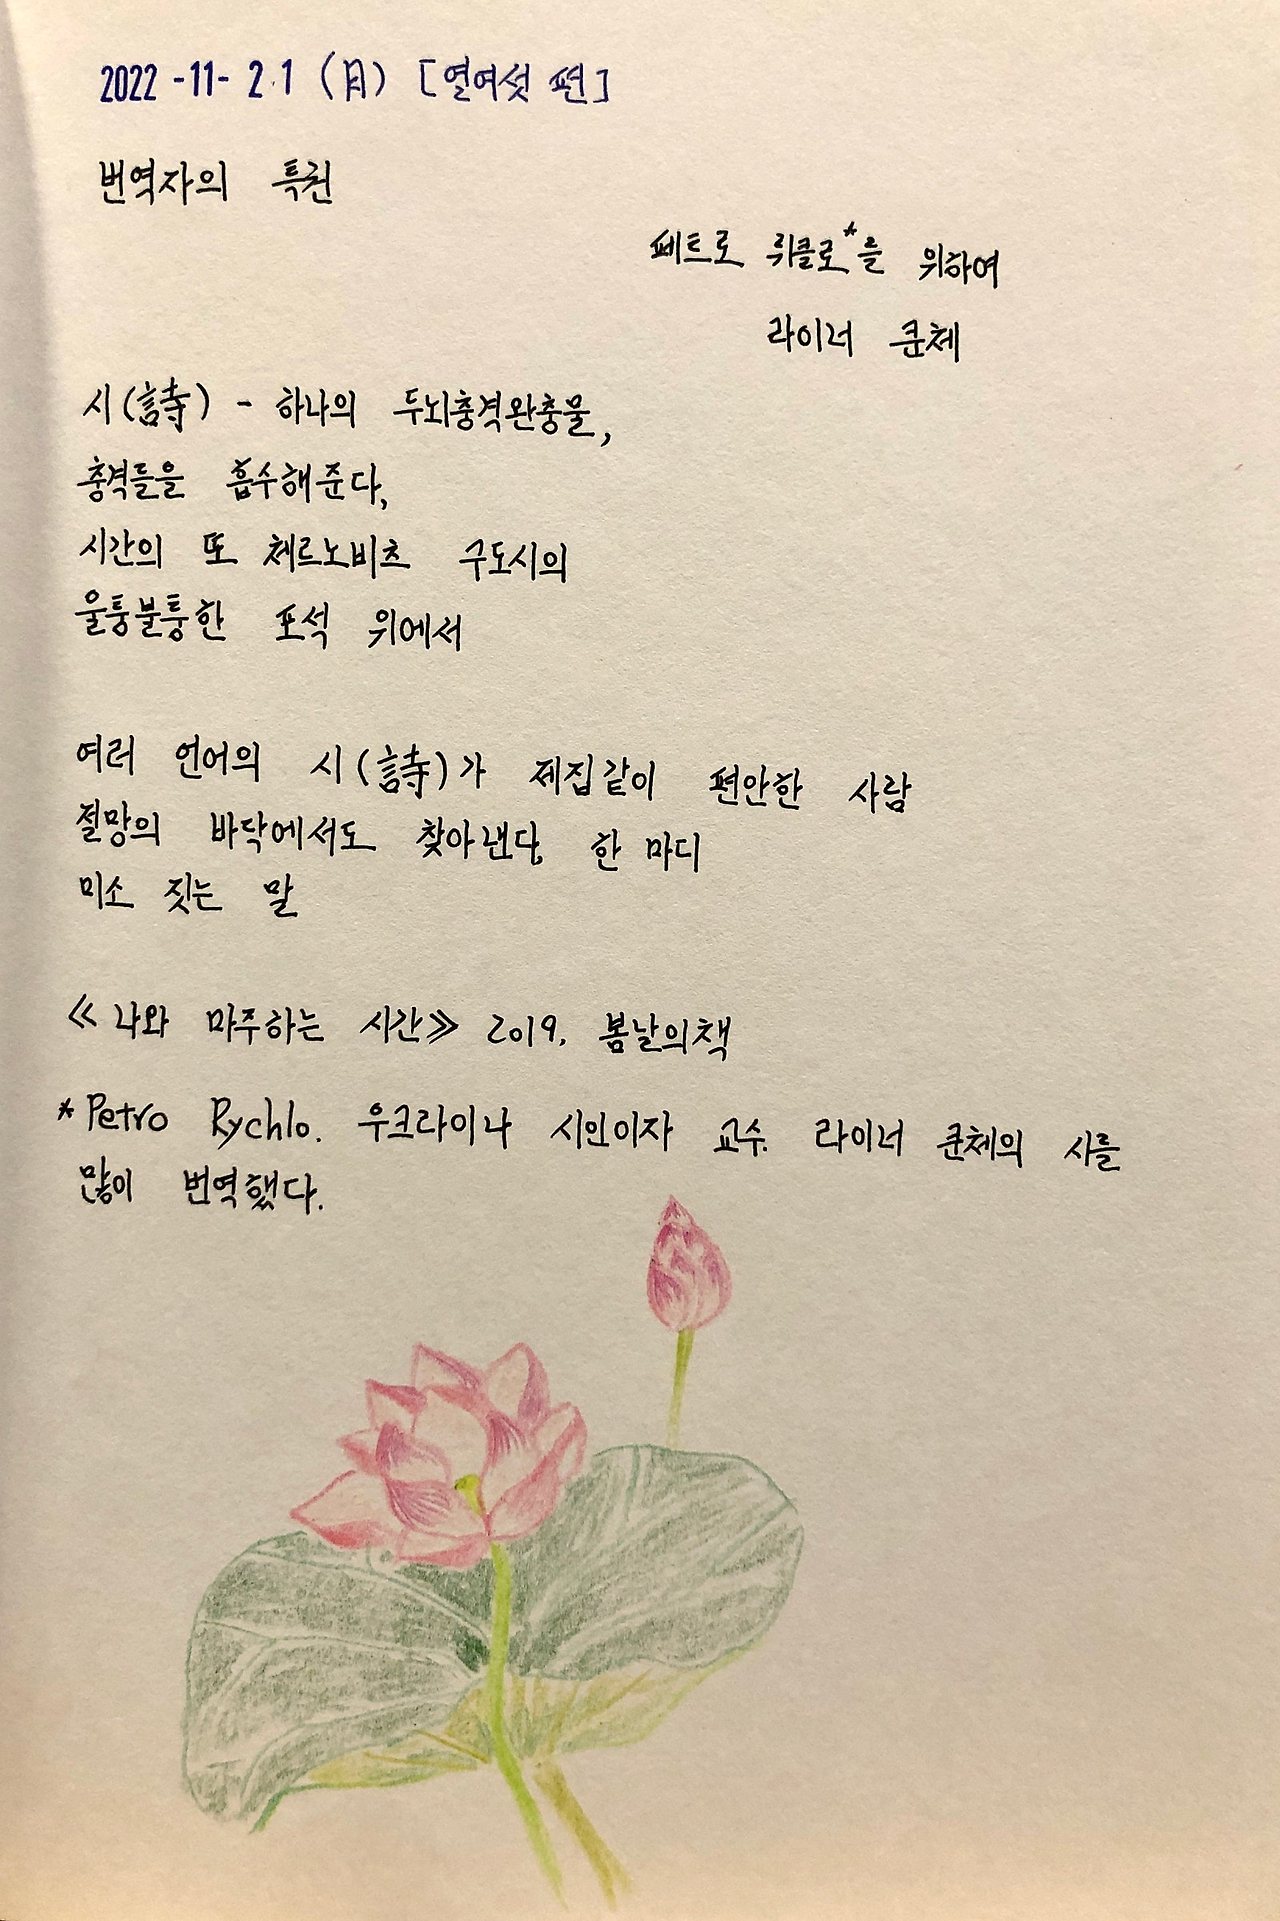 2022-11-21 (月) [열여섯 편]
번역자의 특권
페트로 뤼클로*를 위하여
라이너 쿤체
시(詩) - 하나의 두뇌충격완충물,
충격들을 흡수해준다,
시간의 또 체르노비츠 구도시의
울퉁불퉁한 포석 위에서
여러 언어의 시(詩)가 제집같이 편안한 사람
절망의 바닥에서도 찾아낸다, 한 마디
미소 짓는 말
≪나와 마주하는 시간≫ 2019. 봄날의책
*Petro Rychlo. 우크라이나 시인이자 교수. 라이너 쿤체의 시를
많이 번역했다.